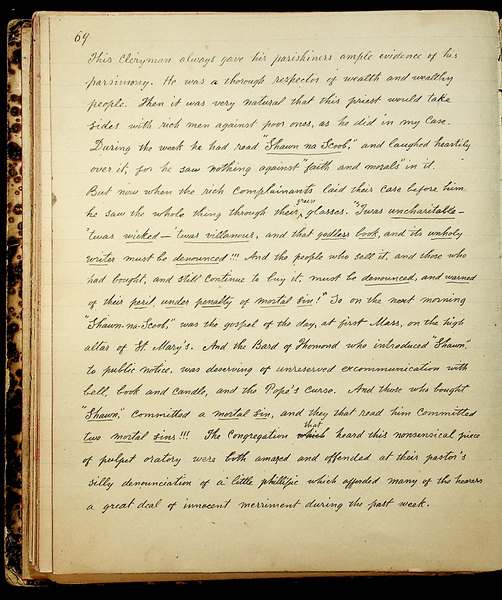 64
This Cleryman always gave his parishiners ample evidence of his
parsimony. He was a thorough respector of wealth and wealthy
people. Then it was very natural that this priest would take
sides with rich men against poor ones, as he did in my case.
During the week he had read "Shawn na Scoob," and laughed heartily
over it, for he saw nothing against "faith and morals" in it.
But now when the rich complainants laid their case before him
he saw the whole thing through their green glasses. "'Twas uncharitable—
'twas wicked—'twas villanour, and that godless book and its unholy
writer must be denounced!!! And the people who sell it, and those who
had bought, and still continue to buy it, must be denounced, and warned
of their peril, under penalty of mortal sin!" So on the next morning
"Shawn-na-Scoob," was the gospel of the day, at first Mass, on the high
altar of St. Mary's. And the Bard of Thomond who introduced "Shawn,"
to public notice, was deserving of unreserved excommunication with
bell, book and candle, and the Pope's curse. And those who bought
"Shawn," committed a mortal sin, and they that read him committed
two mortal sins!!! The Congregation which that heard this nonsensical piece
of pulpet oratory were both amazed and offended at their pastor's
silly denunciation of a little phillific which afforded many of the hearers
a great deal of innocent merriment during the past week.